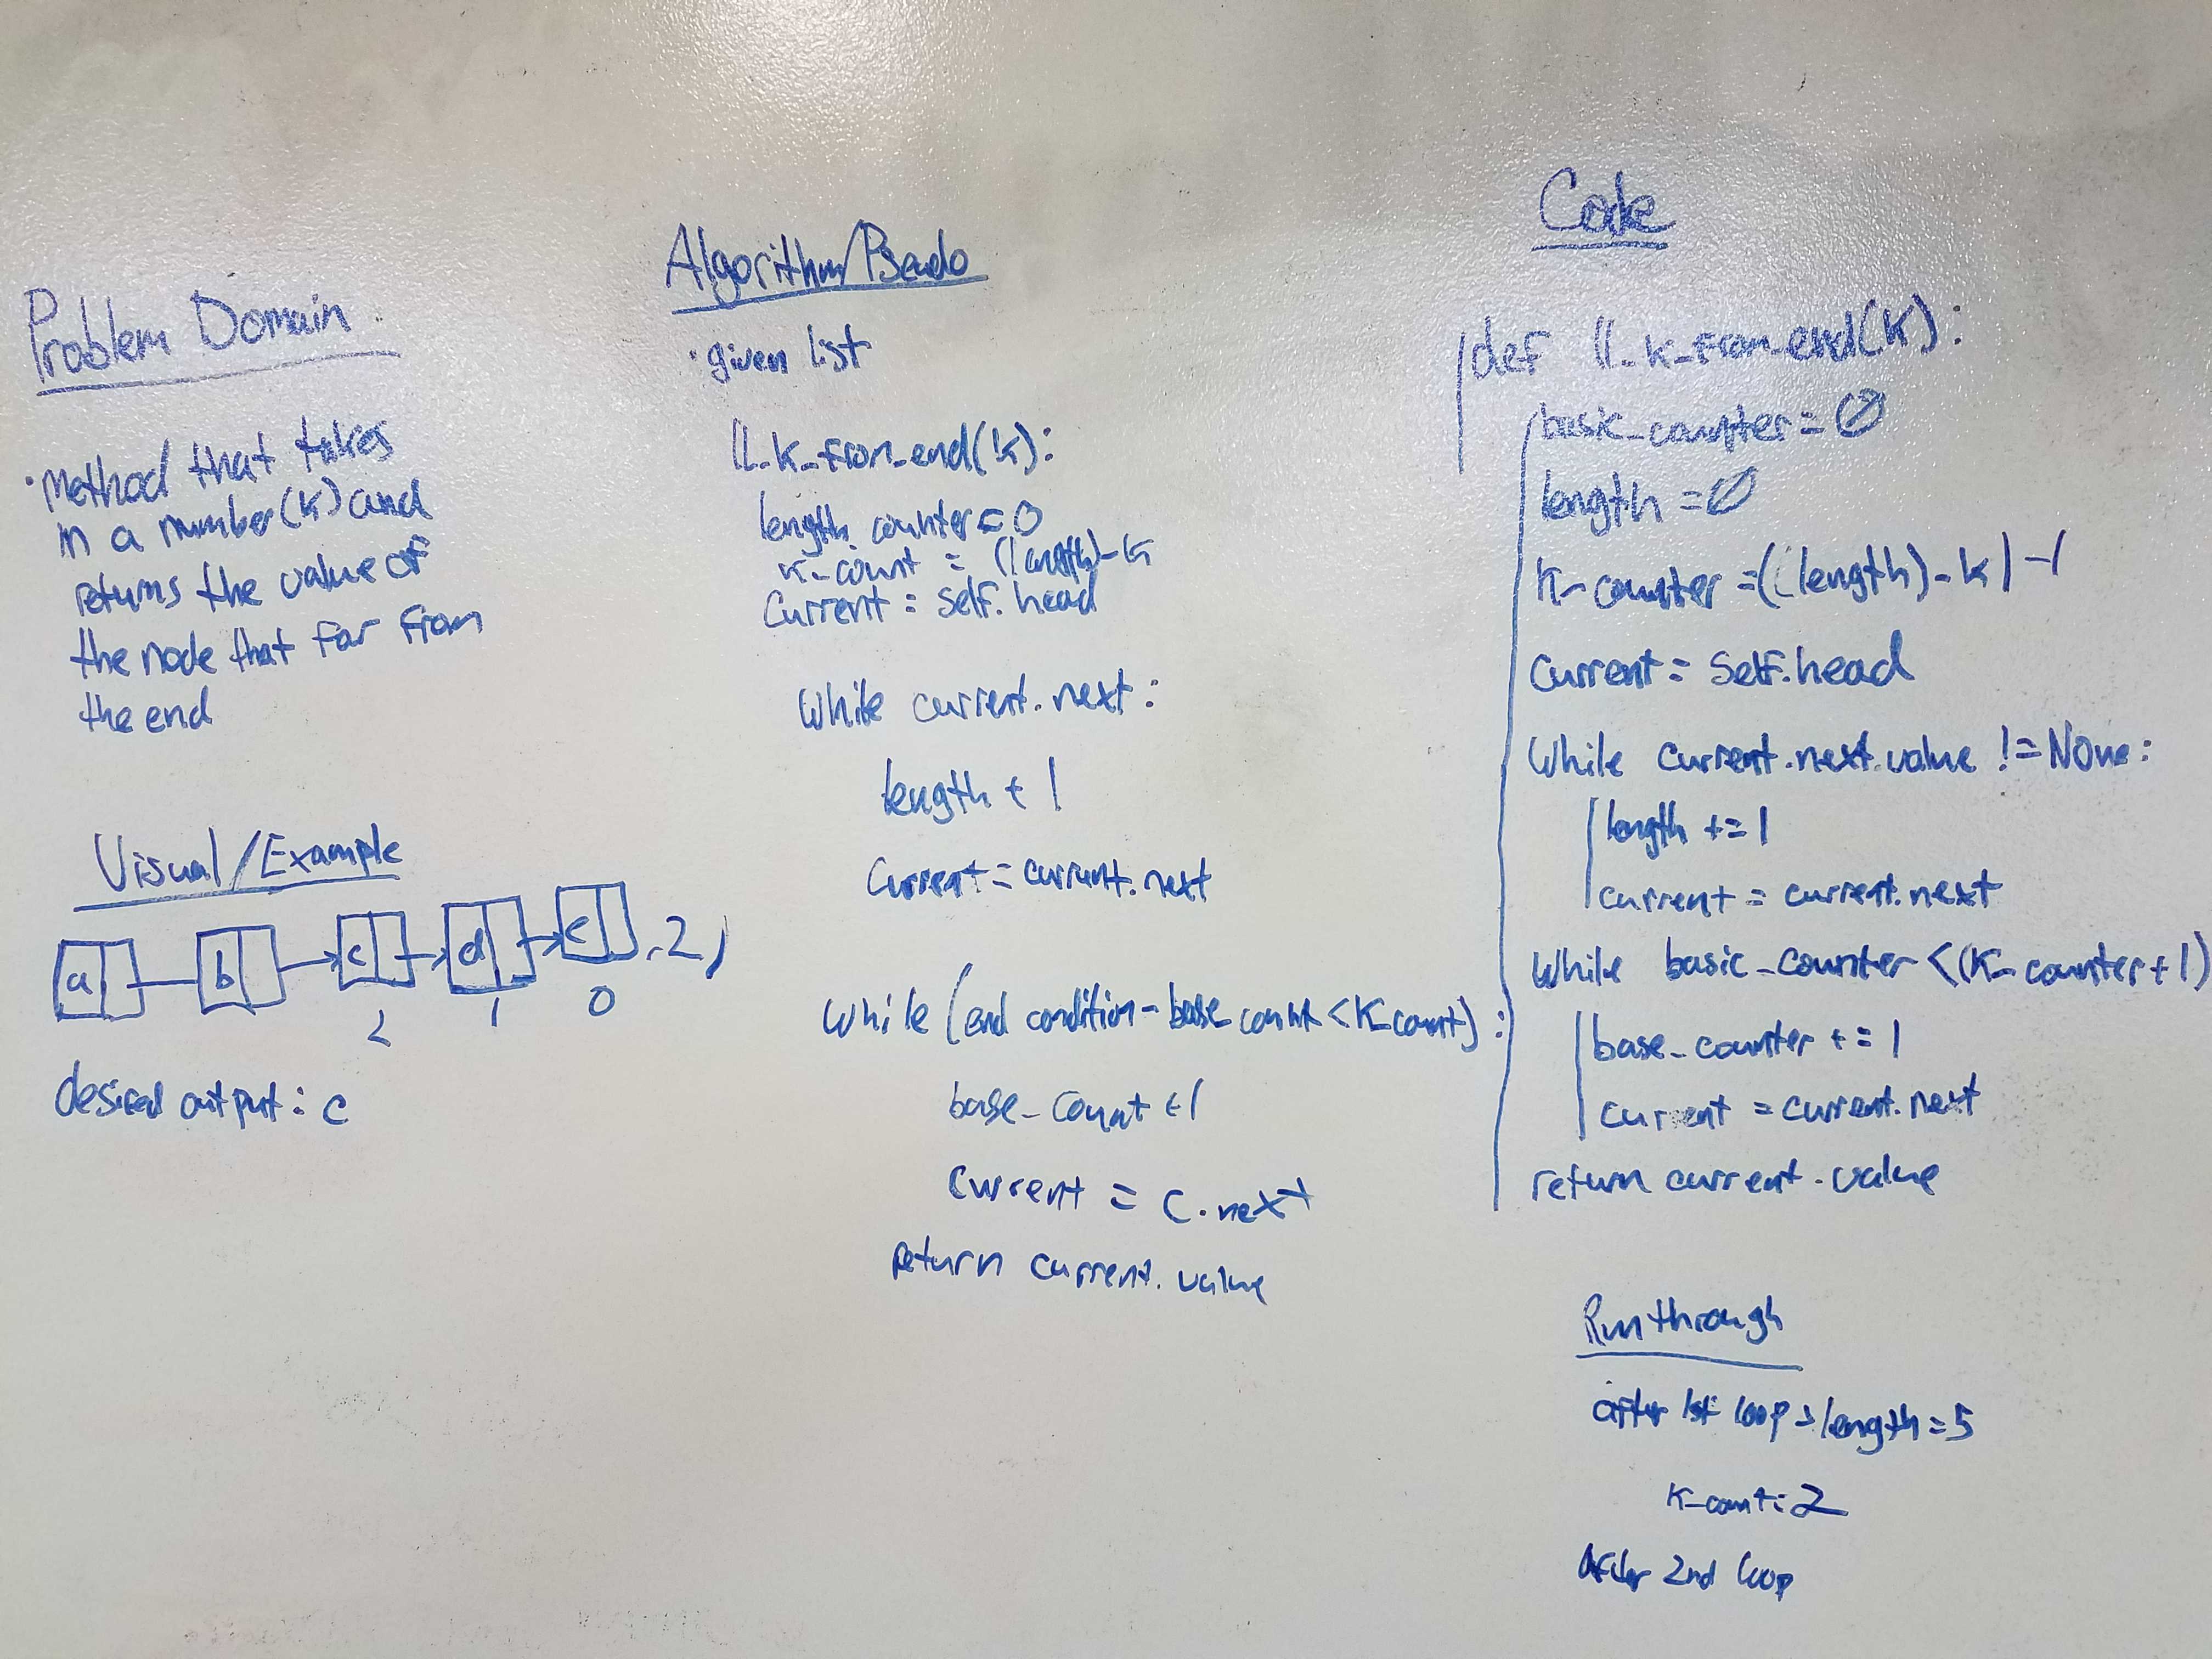 Problem Domain
• Method that takes
in a number (k) and
returns the value of
the node that far from
the end
Visual/Example
a b c d e , 2 )
2 1 0
desired output: c
Algorithm/Pseudo
• given list
ll_k_from_end(k):
length_counter = 0
k_count = (length)-k
Current = self.head
While current.next:
length + 1
Current = current.next
While (end condition - base_count < K_count):
base_count + 1
Current = c.next
return current.value
Code
def ll_k_from_end(k):
basic_counter = 0
length = 0
K_counter = ((length) - k) - 1
Current = Self.head
While current.next.value != None:
length += 1
current = current.next
While basic_counter < (K_counter + 1)
base_counter += 1
current = current.next
return current.value
Run through
after 1st loop > length = 5
K_count: 2
After 2nd loop